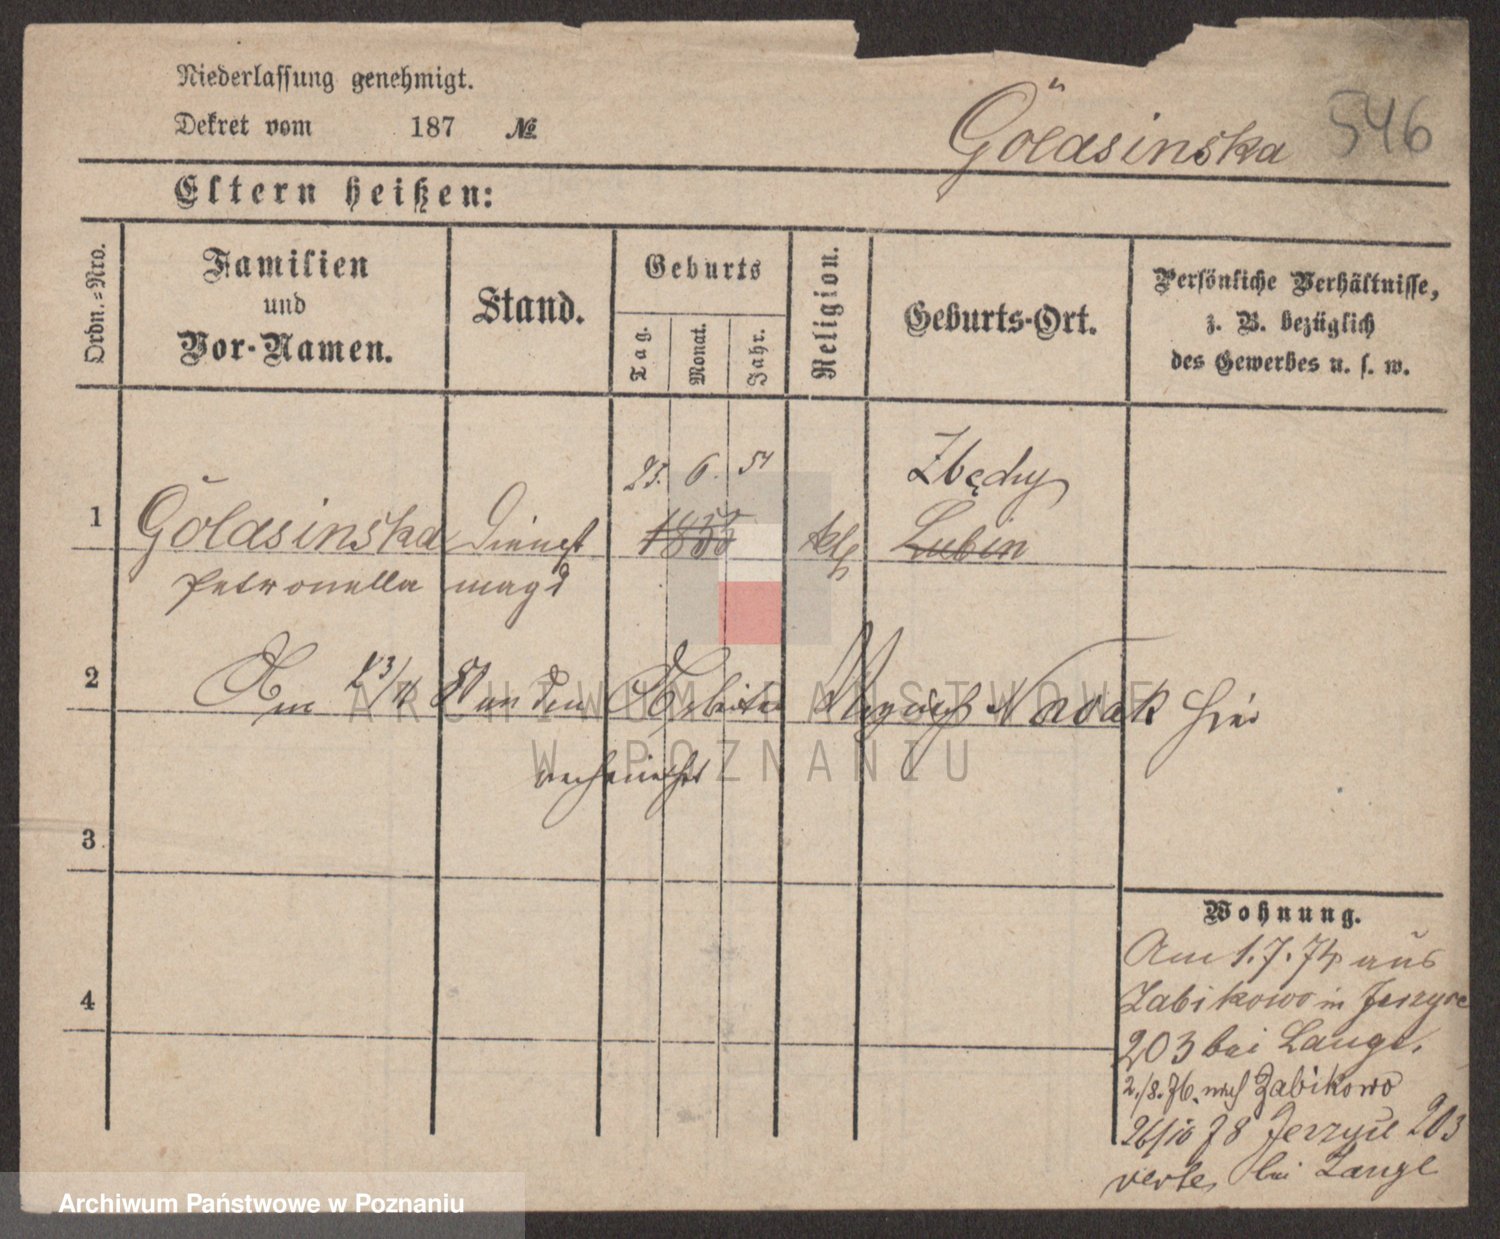 Niederlassung genehmigt.
Dekret vom 187 №
Golasinska 546
Eltern heißen:
Ordn.-Nro.
Familien
und
Vor-Namen.
Stand.
Geburts
Tag.
Monat.
Jahr.
Religion.
Geburts-Ort.
Persönliche Verhältnisse,
z. B. bezüglich
des Gewerbes u. s. w.
23. 6. 54 Zbędy
1 Golasinska Dienst 1850 kth Lubin
Petronella magd
2 Am 23/11 80 an den Arbeiter Nowak hier
verheirathet
3
4
Wohnung.
Am 1. 7. 74 aus
Zabikowo in Jerzyce
203 bei Lange.
2./8. 76. nach Zabikowo
26/10 78 Jerzyce 203
verte, bei Lange
ARCHIWUM PAŃSTWOWE
W POZNANIU
Archiwum Państwowe w Poznaniu